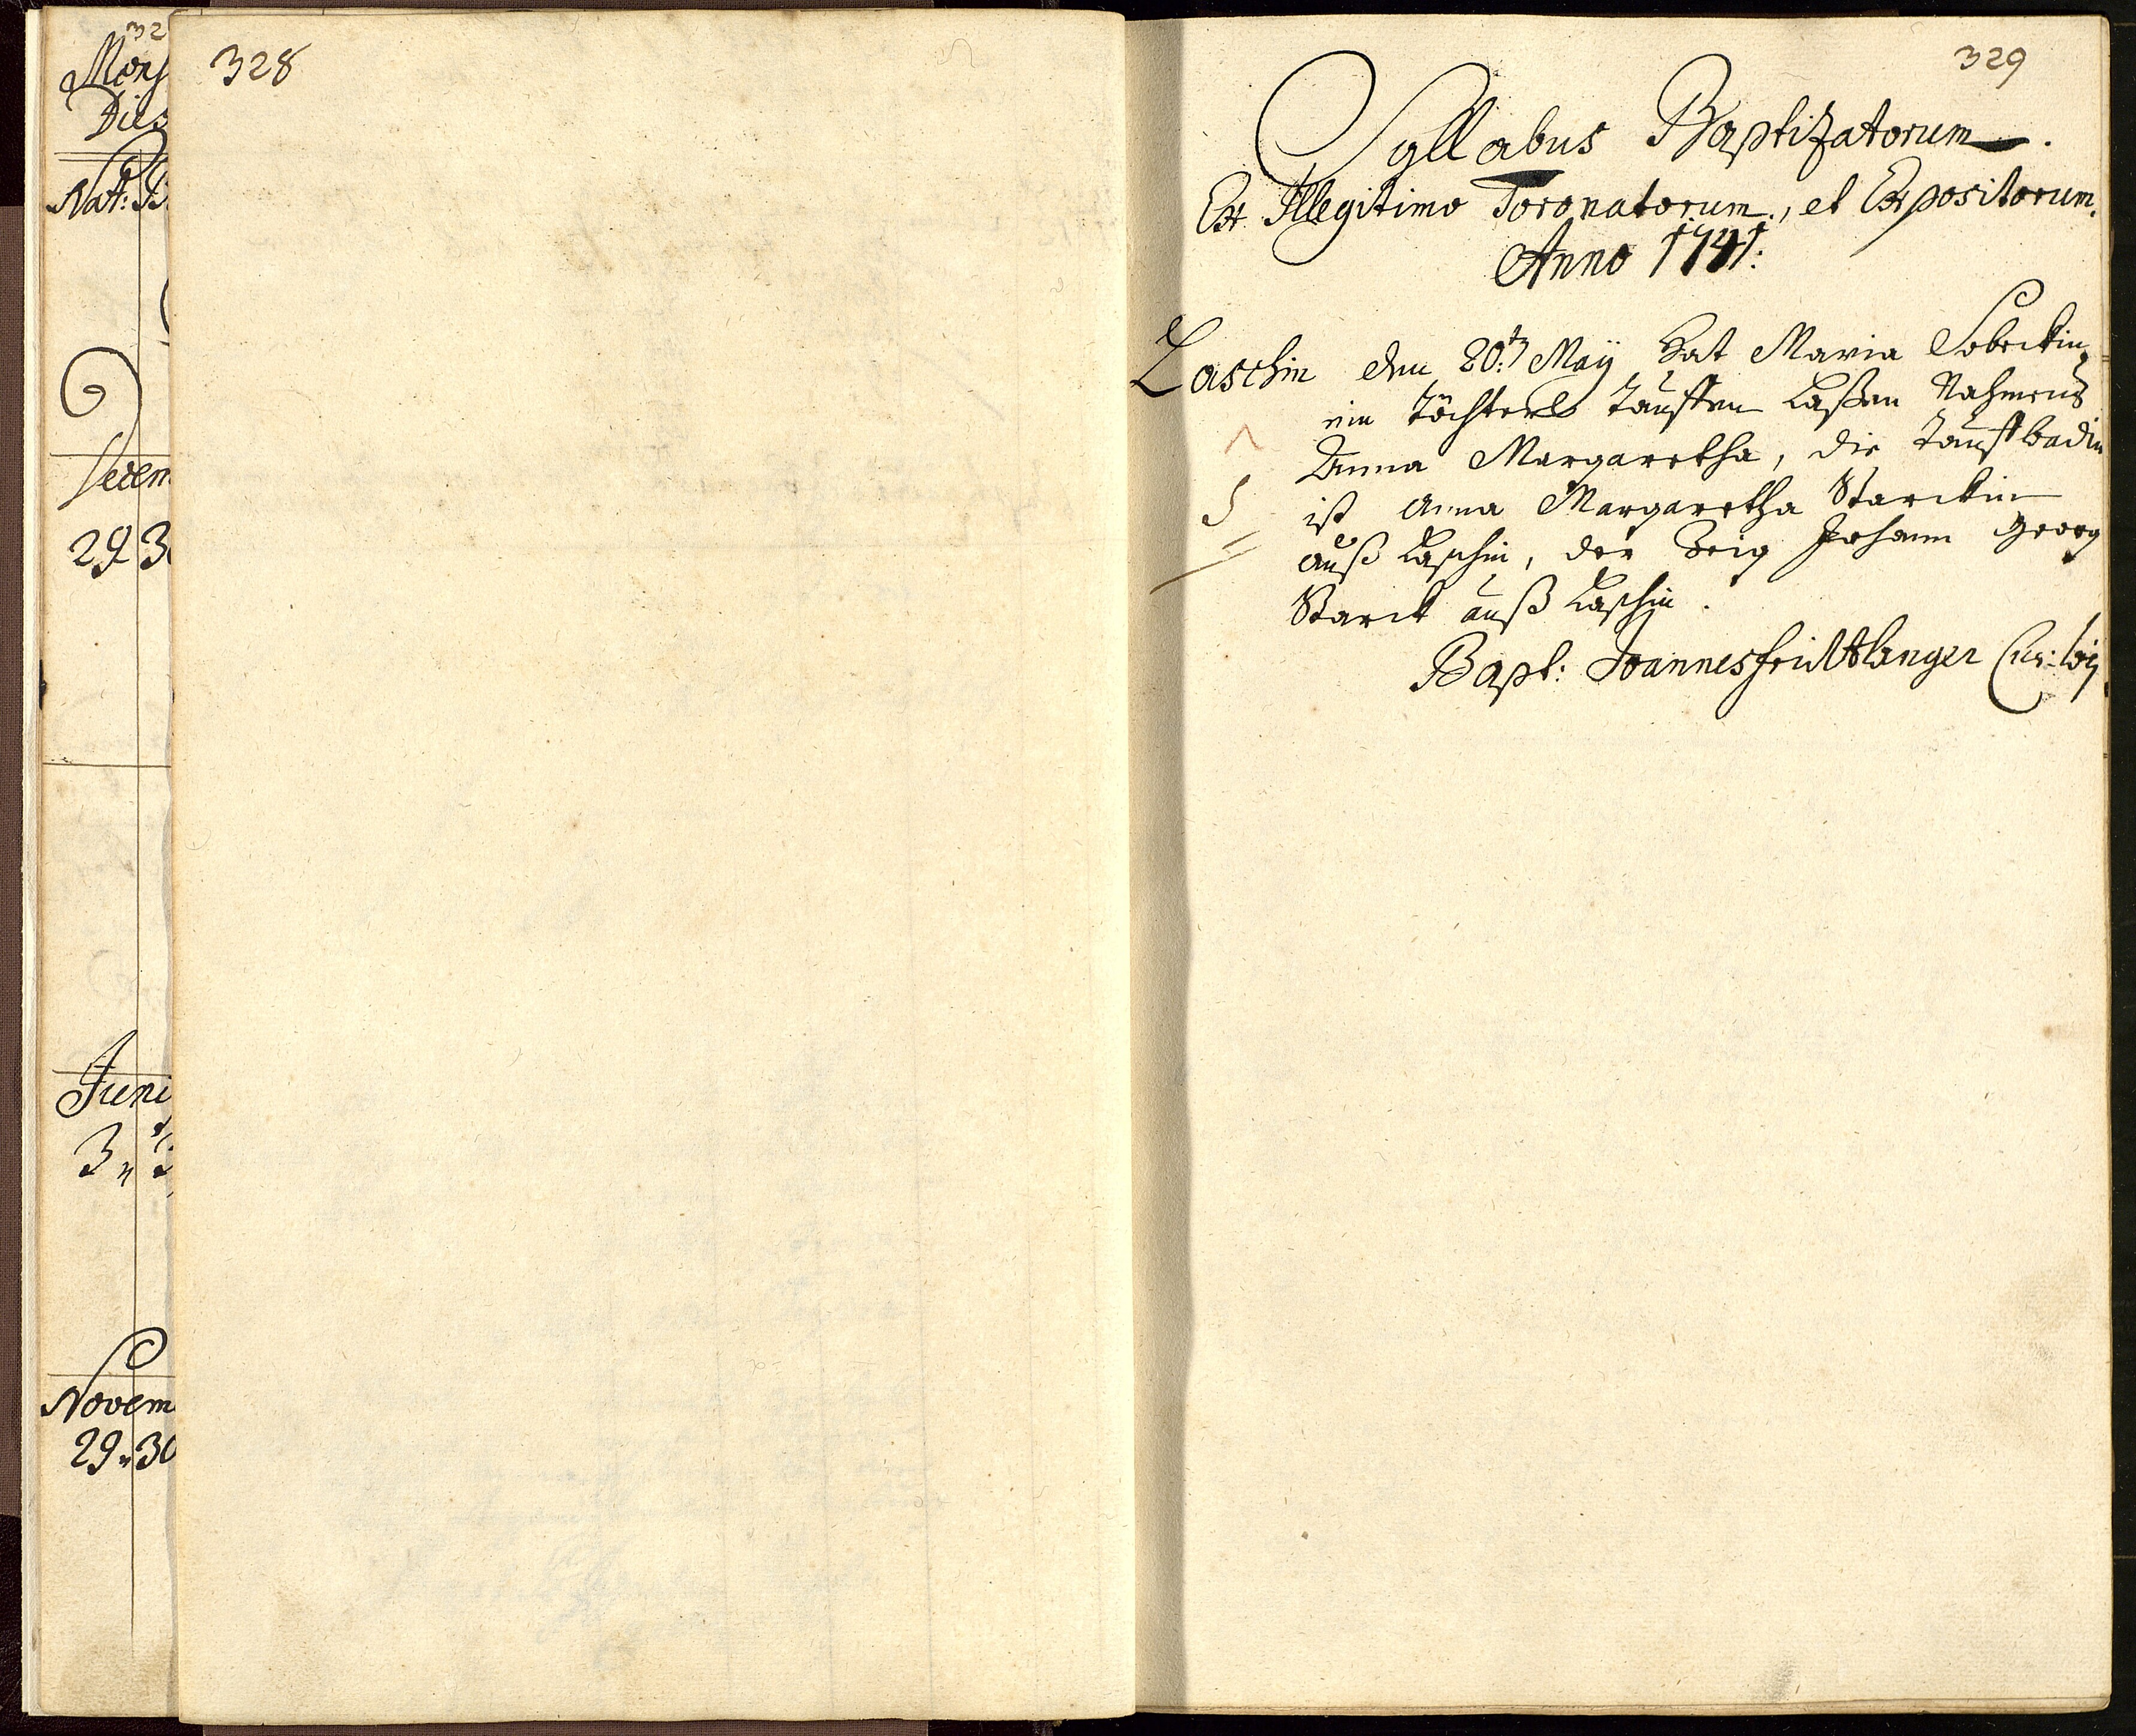 32
Mens
Dies
Nat: B
Decem
29 30
Juni
3
Novem
29 30
328
329
Syllabus Baptizatorum.
Ex Illegitimo Toro natorum, et Expositorum.
Anno 1741:
Laschin den 20t May hat Maria Sobeckin
ein Töchterl Tauffen Laßen Nahmens
Anna Margaretha, die Tauffbadin
ist Anna Margaretha Starckin
auß Laschin, der Zeig Johann Georg
Starck auß Laschin.
Bapt: Joannes